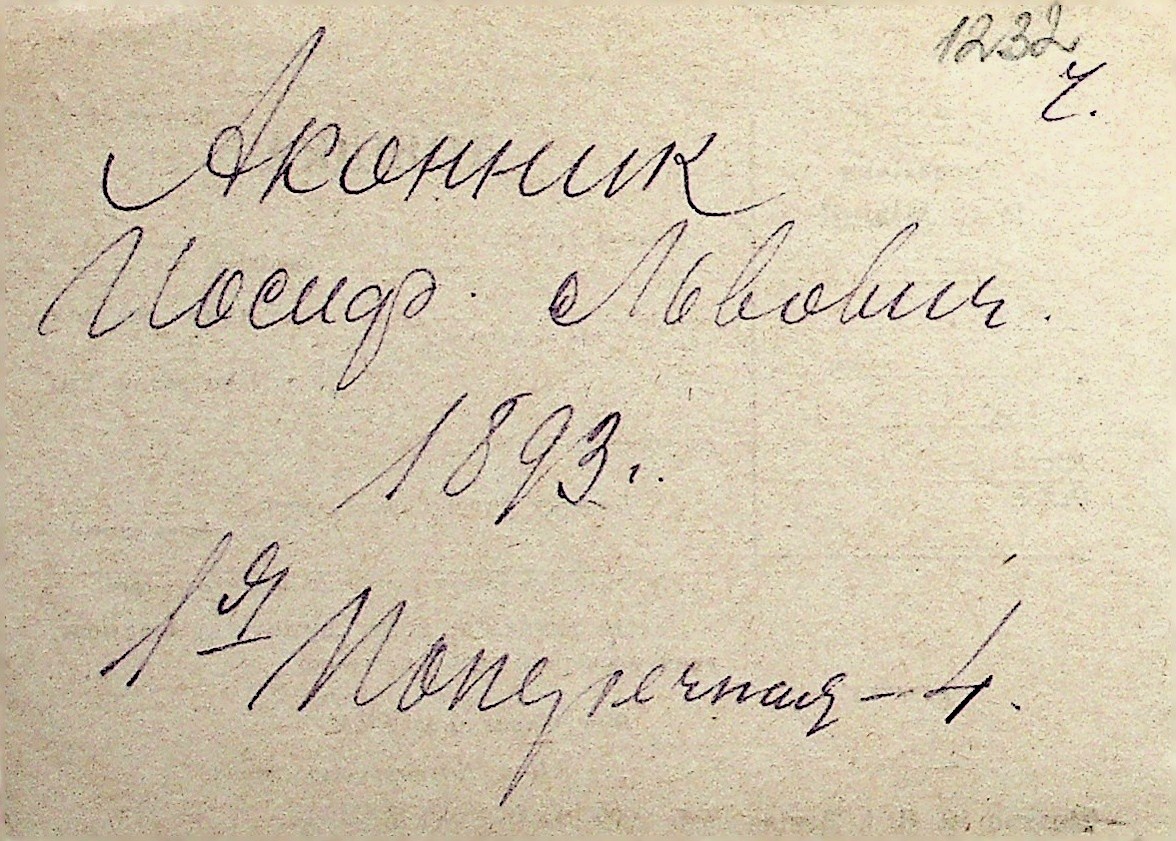 1232
ч.
Аконник
Иосиф Львович.
1893г.
1я Поперечная – 4.